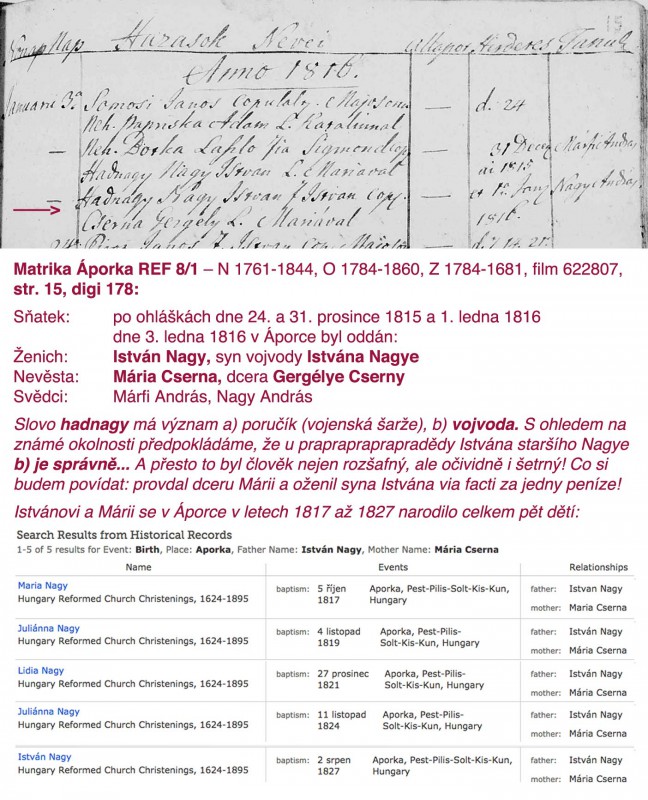 15
Hónap Nap Házasok Nevei Állapot Hirdetes Tanuk
Anno 1816.
Januarii 3a Somosi Janos copulaly. Majosona — d. 24
Neh. Paprnska Adam L. Katalinnal
— Neh. Dorka Laslo fia Sigmond cop — 31 Decem Márfi András
Hadnagy Nagy Istvan L. Mariaval 1815
— Hadnagy Nagy Istvan f Istvan copu — et 1a Janr Nagy András
Cserna Gergely L. Mariaval 1816.
Janos f. Istvan Cop.
Matrika Áporka REF 8/1 – N 1761-1844, O 1784-1860, Z 1784-1681, film 622807,
str. 15, digi 178:
Sňatek: po ohláškách dne 24. a 31. prosince 1815 a 1. ledna 1816
dne 3. ledna 1816 v Áporce byl oddán:
Ženich: István Nagy, syn vojvody Istvána Nagye
Nevěsta: Mária Cserna, dcera Gergélye Cserny
Svědci: Márfi András, Nagy András
Slovo hadnagy má význam a) poručík (vojenská šarže), b) vojvoda. S ohledem na
známé okolnosti předpokládáme, že u praprapraprapradědy Istvána staršího Nagye
b) je správně... A přesto to byl člověk nejen rozšafný, ale očividně i šetrný! Co si
budem povídat: provdal dceru Márii a oženil syna Istvána via facti za jedny peníze!
Istvánovi a Márii se v Áporce v letech 1817 až 1827 narodilo celkem pět dětí:
Search Results from Historical Records
1-5 of 5 results for Event: Birth, Place: Aporka, Father Name: István Nagy, Mother Name: Mária Cserna
Name Events Relationships
Maria Nagy baptism: 5 říjen Aporka, Pest-Pilis-Solt-Kis-Kun, father: Istvan Nagy
Hungary Reformed Church Christenings, 1624-1895 1817 Hungary mother: Maria Cserna
Juliánna Nagy baptism: 4 listopad Aporka, Pest-Pilis- father: István Nagy
Hungary Reformed Church Christenings, 1624-1895 1819 Solt-Kis-Kun, Hungary mother: Mária Cserna
Lidia Nagy baptism: 27 prosinec Aporka, Pest-Pilis- father: István Nagy
Hungary Reformed Church Christenings, 1624-1895 1821 Solt-Kis-Kun, Hungary mother: Mária Cserna
Juliánna Nagy baptism: 11 listopad Aporka, Pest-Pilis- father: István Nagy
Hungary Reformed Church Christenings, 1624-1895 1824 Solt-Kis-Kun, Hungary mother: Mária Cserna
István Nagy baptism: 2 srpen Aporka, Pest-Pilis-Solt-Kis-Kun, father: István Nagy
Hungary Reformed Church Christenings, 1624-1895 1827 Hungary mother: Mária Cserna